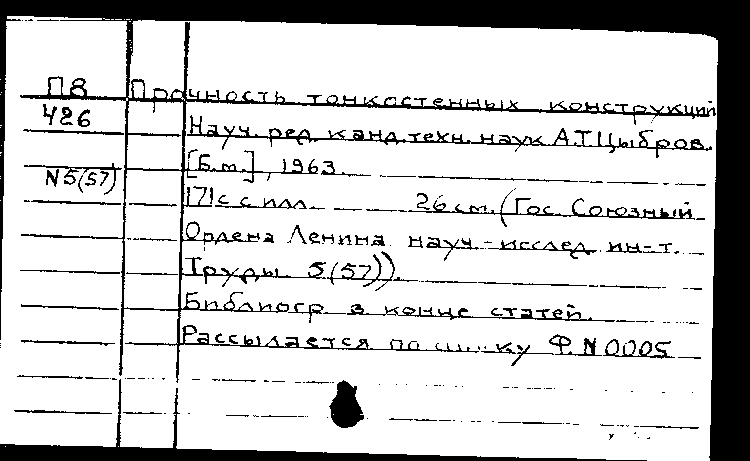 П8 Прочность тонкостенных конструкций
426 Науч. ред. канд. техн. наук А.Т.Цыбров.
[Б.м.], 1963.
N5(57)
171с с илл. 26 см. (Гос. Союзный
Ордена Ленина науч.-исслед. ин-т.
Труды. 5(57)).
Библиогр. в конце статей.
Рассылается по Ф. N 0005